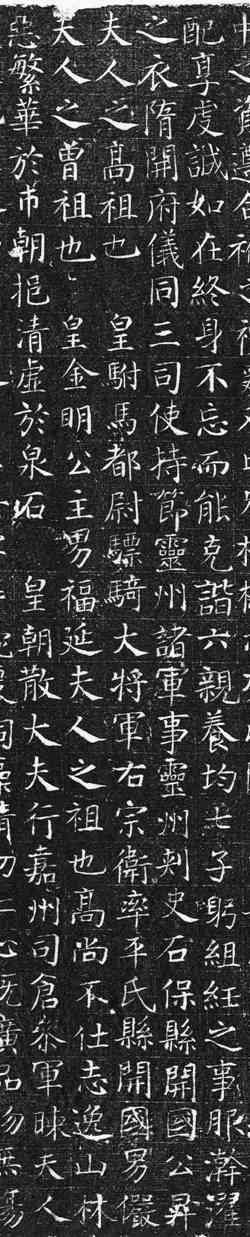 配享虔誠如在終身不忘而能克諧六親養均七子躬組紝之事服澣濯
之衣隋開府儀同三司使持節靈州諸軍事靈州刺史石保縣開國公昇
夫人之髙祖也皇駙馬都尉驃騎大將軍右宗衛率平氏縣開國男儼
夫人之曾祖也皇金明公主男福延夫人之祖也髙尚不仕志逸山林
惡繁華於市朝挹清虛於泉石皇朝散大夫行嘉州司倉參軍暕夫人